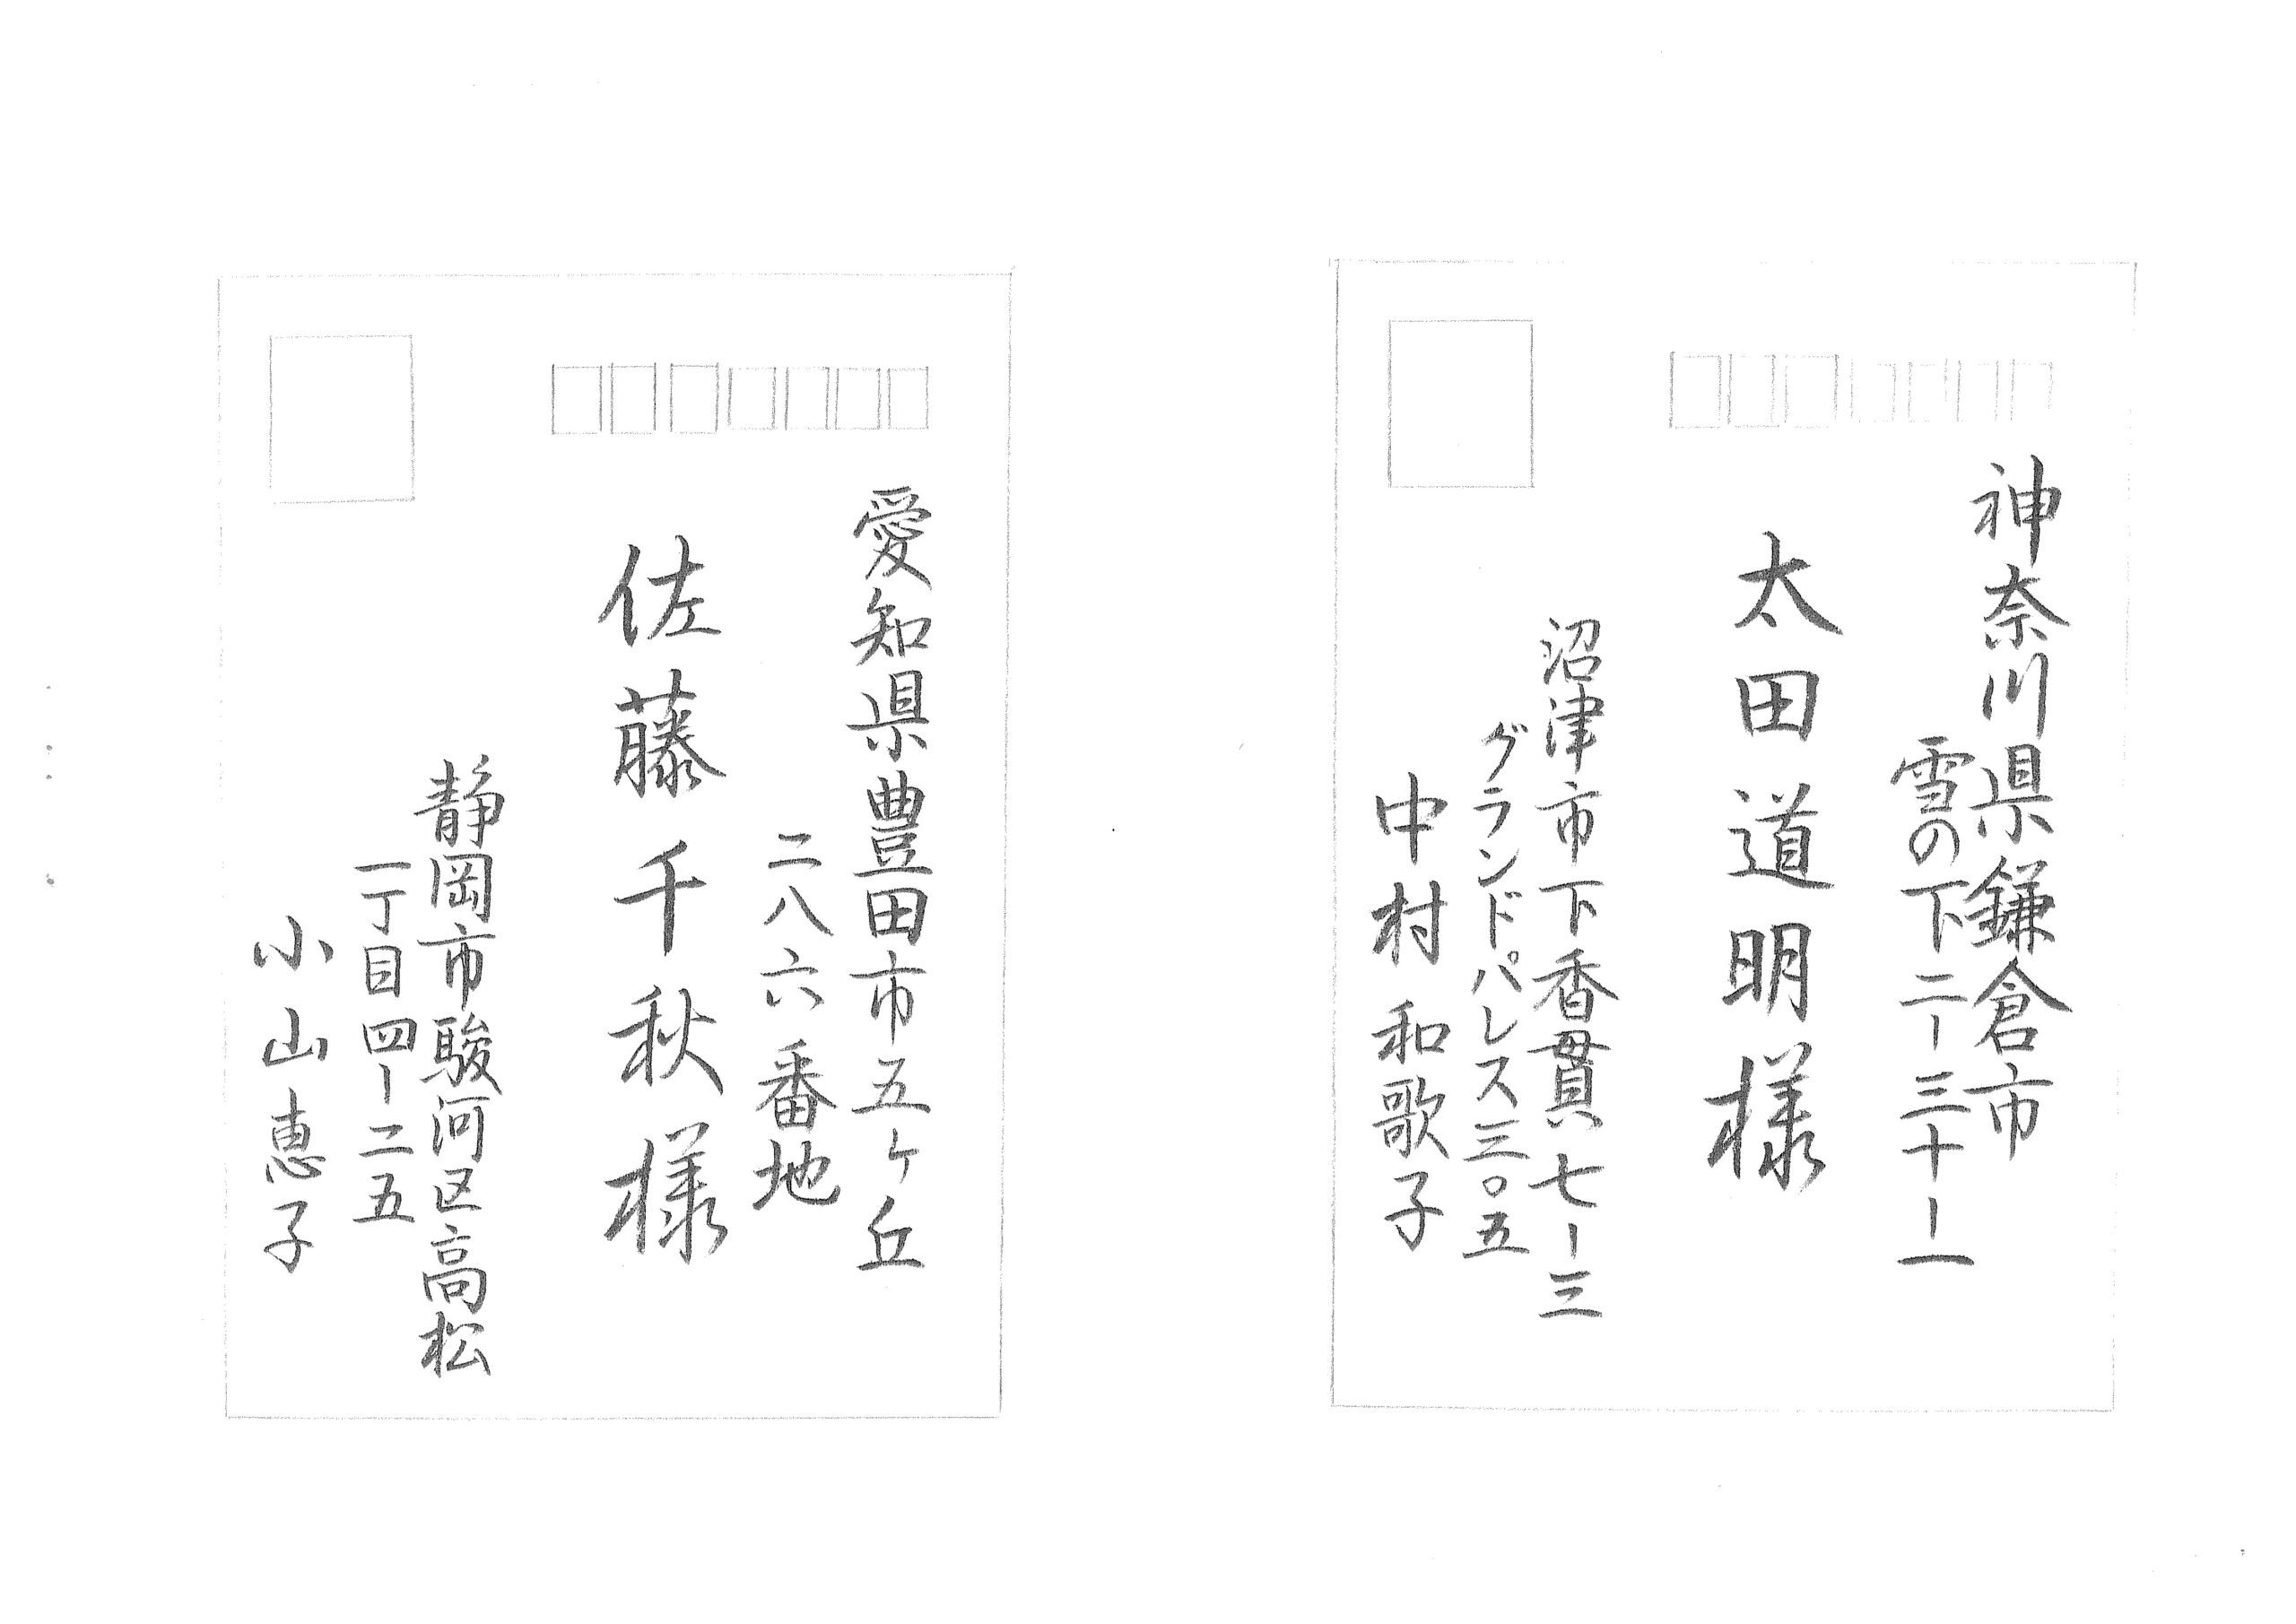 神奈川県鎌倉市
雪の下二ー三十ー一
太田道明様
沼津市下香貫七ー三
グランドパレス三〇五
中村和歌子
愛知県豊田市五ヶ丘
二八六番地
佐藤千秋様
静岡市駿河区高松
一丁目四ー二五
小山恵子